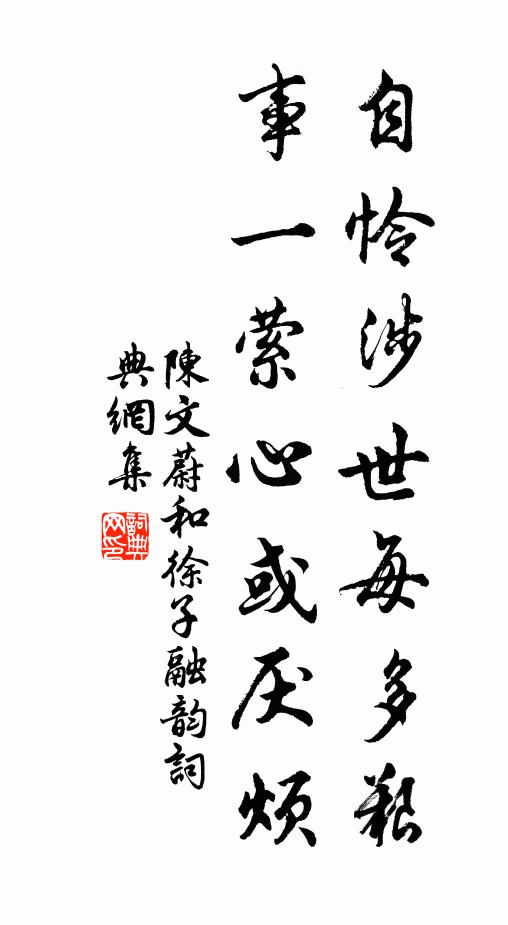 自怜涉世每多艱
事一萦心或厌烦
陳文蔚和徐子融韵詞
典網集
詞典网印